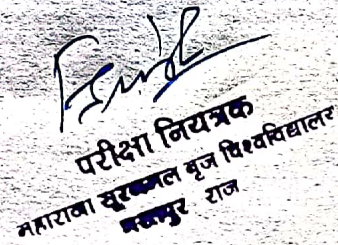 परीक्षा नियत्रक
महाराजा सूरजमल बृज विश्वविद्यालय
भरतपुर राज